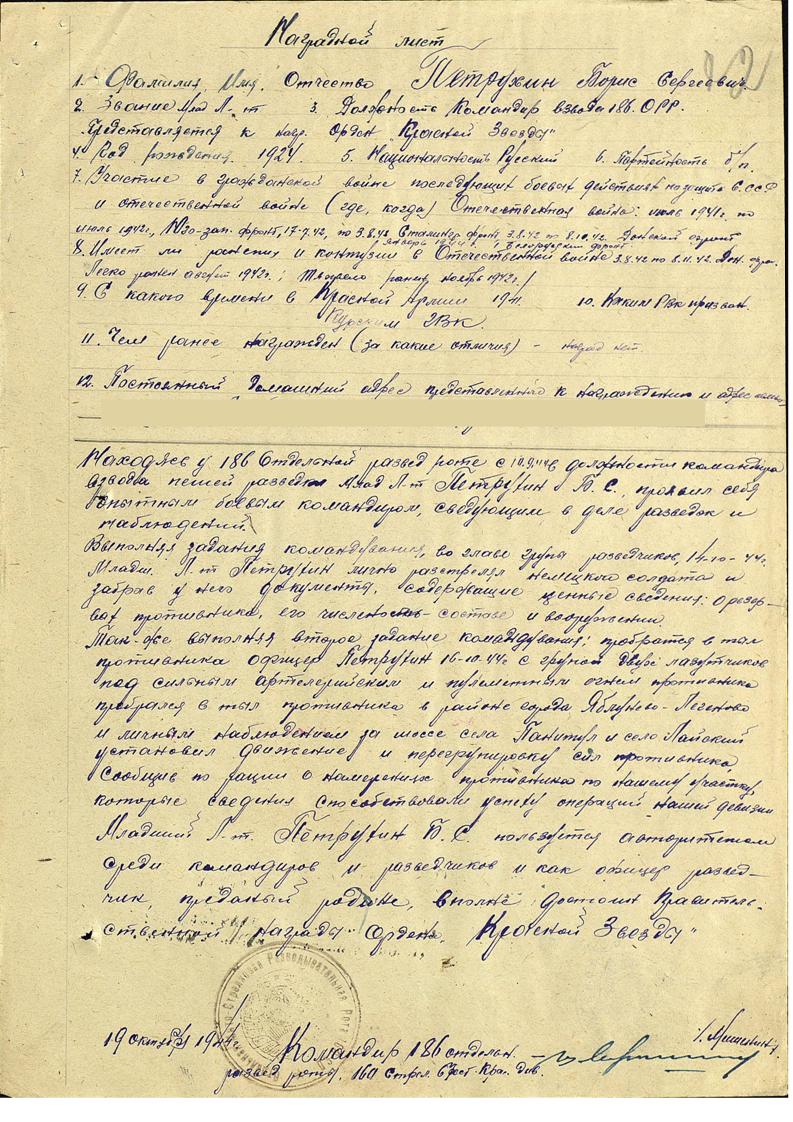 Наградной лист
1. Фамилия, Имя, Отчество Петрухин Борис Сергеевич
2. Звание Млад. Л-т 3. Должность Командир взвода 186. ОРР.
Представляется к награ. Орден Красной Звезды"
4. Год рождения 1924. 5. Национальность Русский 6. Партейность б/п.
7. Участие в гражданской войне последующих боевых действиях по защите СССР
и отечественной войне (где, когда) Отечественная война: июль 1941г. по
июль 1942г, Юго-зап. фронт, 17.7.42, по 3.8.42 Сталингр фронт, 3.8.42 по 8.10.42. Донской фронт
январь 1944г., Белорусский фронт.
8. Имеет ли ранения и контузии в Отечественной войне 3.8.42 по 8.11.42. Дон. фро.
Легко ранен август 1942г.; Тяжело ранен ноябрь 1942г.
9. С какого времени в Красной Армии 1941. 10. Каким РВК призван.
Курским ГВК.
11. Чем ранее награжден (за какие отличия) - наград нет
12. Постоянный домашний адрес представленного к награждению и адрес семьи
Находясь у 186 Отдельной развед роте с в должности командира
взвода пешей разведки Млад Л-т Петрухин Б.С., проявил себя
опытным боевым командиром, сведующим в деле разведок и
наблюдений.
Выполняя задания командувания, во главе групы разведчиков, 14-10-44г.
Младш. Л-т Петрухин лично расстрелял немецкого солдата и
забрав у него документы, содержащие ценные сведения: о резер-
вах противника, его численость составе и вооружении.
Так-же выполняя второе задание командувания: пробратся в тыл
противника офицер Петрухин 16-10-44г. с групой двух лазутчиков
под сильным артелерийским и пулеметным огнем противника
пробрался в тыл противника в районе города Яблуново-Легеново
и личным наблюдением за шоссе села и село
установил движение и перегрупировку сил противника,
Сообщив по рации о намерениях противника по нашему участку,
которые сведения способствовали успеху операций нашей девизии
Младший Л-т. Петрухин Б.С. пользуется авторитетом
среди командиров и разведчиков и как офицер развед-
чик, преданый родине, вполне достоин Правитель-
ственной награды Ордена "Красной Звезды"
19 октября 1944г. Командир 186 отдельн.
развед роты. 160 Стрел. Брест Кра. Див.